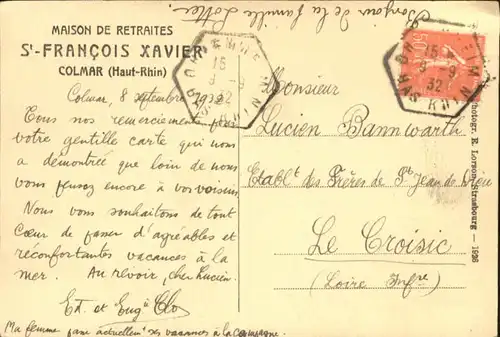 Bonjour de la famille Lotter.
MAISON DE RETRAITES
St-FRANÇOIS XAVIER
COLMAR (Haut-Rhin)
Colmar, 8 septembre 1932
Tous nos remerciements pour
votre gentille carte qui nous
a démontrée que loin de nous
vous pensez encore à vos voisins
Nous vous souhaitons de tout
cœur de passer d'agréables et
réconfortantes vacances à la
mer. Au revoir, cher Lucien.
Ed. et Eug
Ma femme passe actuellemt ses vacances à la campagne.
16
8-9
32
HORBOURG
Monsieur
Lucien Bannwarth
Etablt des Frères de St Jean de Dieu
Le Croisic
(Loire Infre)
16
8-9
32
Photogr. E. Lorson, Strasbourg — 1926